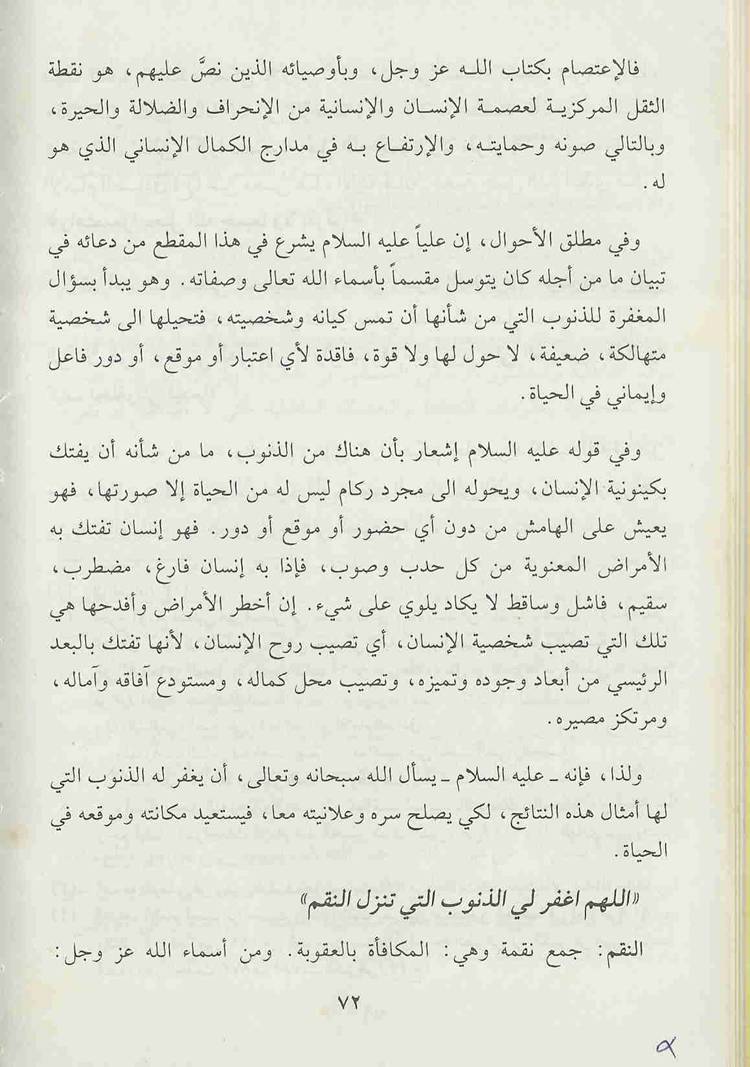 فالإعتصام بكتاب اللـه عز وجل، وبأوصيائه الذين نصَّ عليهم، هو نقطة
الثقل المركزيـة لعصمـة الإنسـان والإنسانية من الإنحراف والضلالة والحيرة،
وبالتالي صونه وحمايتـه، والإرتفـاع بـه في مدارج الكمال الإنساني الذي هو
له.
وفي مطلق الأحوال، إن علياً عليه السلام يشرع في هذا المقطع من دعائه في
تبيان ما من أجله كان يتوسل مقسماً بأسماء الله تعالى وصفاته. وهو يبدأ بسؤال
المغفرة للذنوب التي من شأنها أن تمس كيانه وشخصيته، فتحيلها الى شخصية
متهالكة، ضعيفة، لا حول لها ولا قوة، فاقدة لأي اعتبار أو موقع، أو دور فاعل
وإيماني في الحياة.
وفي قوله عليه السلام إشعار بأن هناك من الذنوب، ما من شأنه أن يفتك
بكينونية الإنسان، ويحوله الى مجرد ركام ليس له من الحياة إلا صورتها، فهو
يعيش على الهامش من دون أي حضور أو موقع أو دور. فهو إنسان تفتك به
الأمراض المعنوية من كل حدب وصوب، فإذا به إنسان فارغ، مضطرب،
سقيم، فاشل وساقط لا يكاد يلوي على شيء. إن أخطر الأمراض وأفدحها هي
تلك التي تصيب شخصية الإنسان، أي تصيب روح الإنسان، لأنها تفتك بالبعد
الرئيسي من أبعاد وجوده وتميزه، وتصيب محل كماله، ومستودع آفاقه وآماله،
ومرتكز مصيره.
ولذا، فإنه ـ عليه السلام ـ يسأل الله سبحانه وتعالى، أن يغفر له الذنوب التي
لها أمثال هذه النتائج، لكي يصلح سره وعلانيته معا، فيستعيد مكانته وموقعه في
الحياة.
«اللهم اغفر لي الذنوب التي تنزل النقم»
النقم: جمع نقمة وهي: المكافأة بالعقوبة. ومن أسماء الله عز وجل:
٧٢